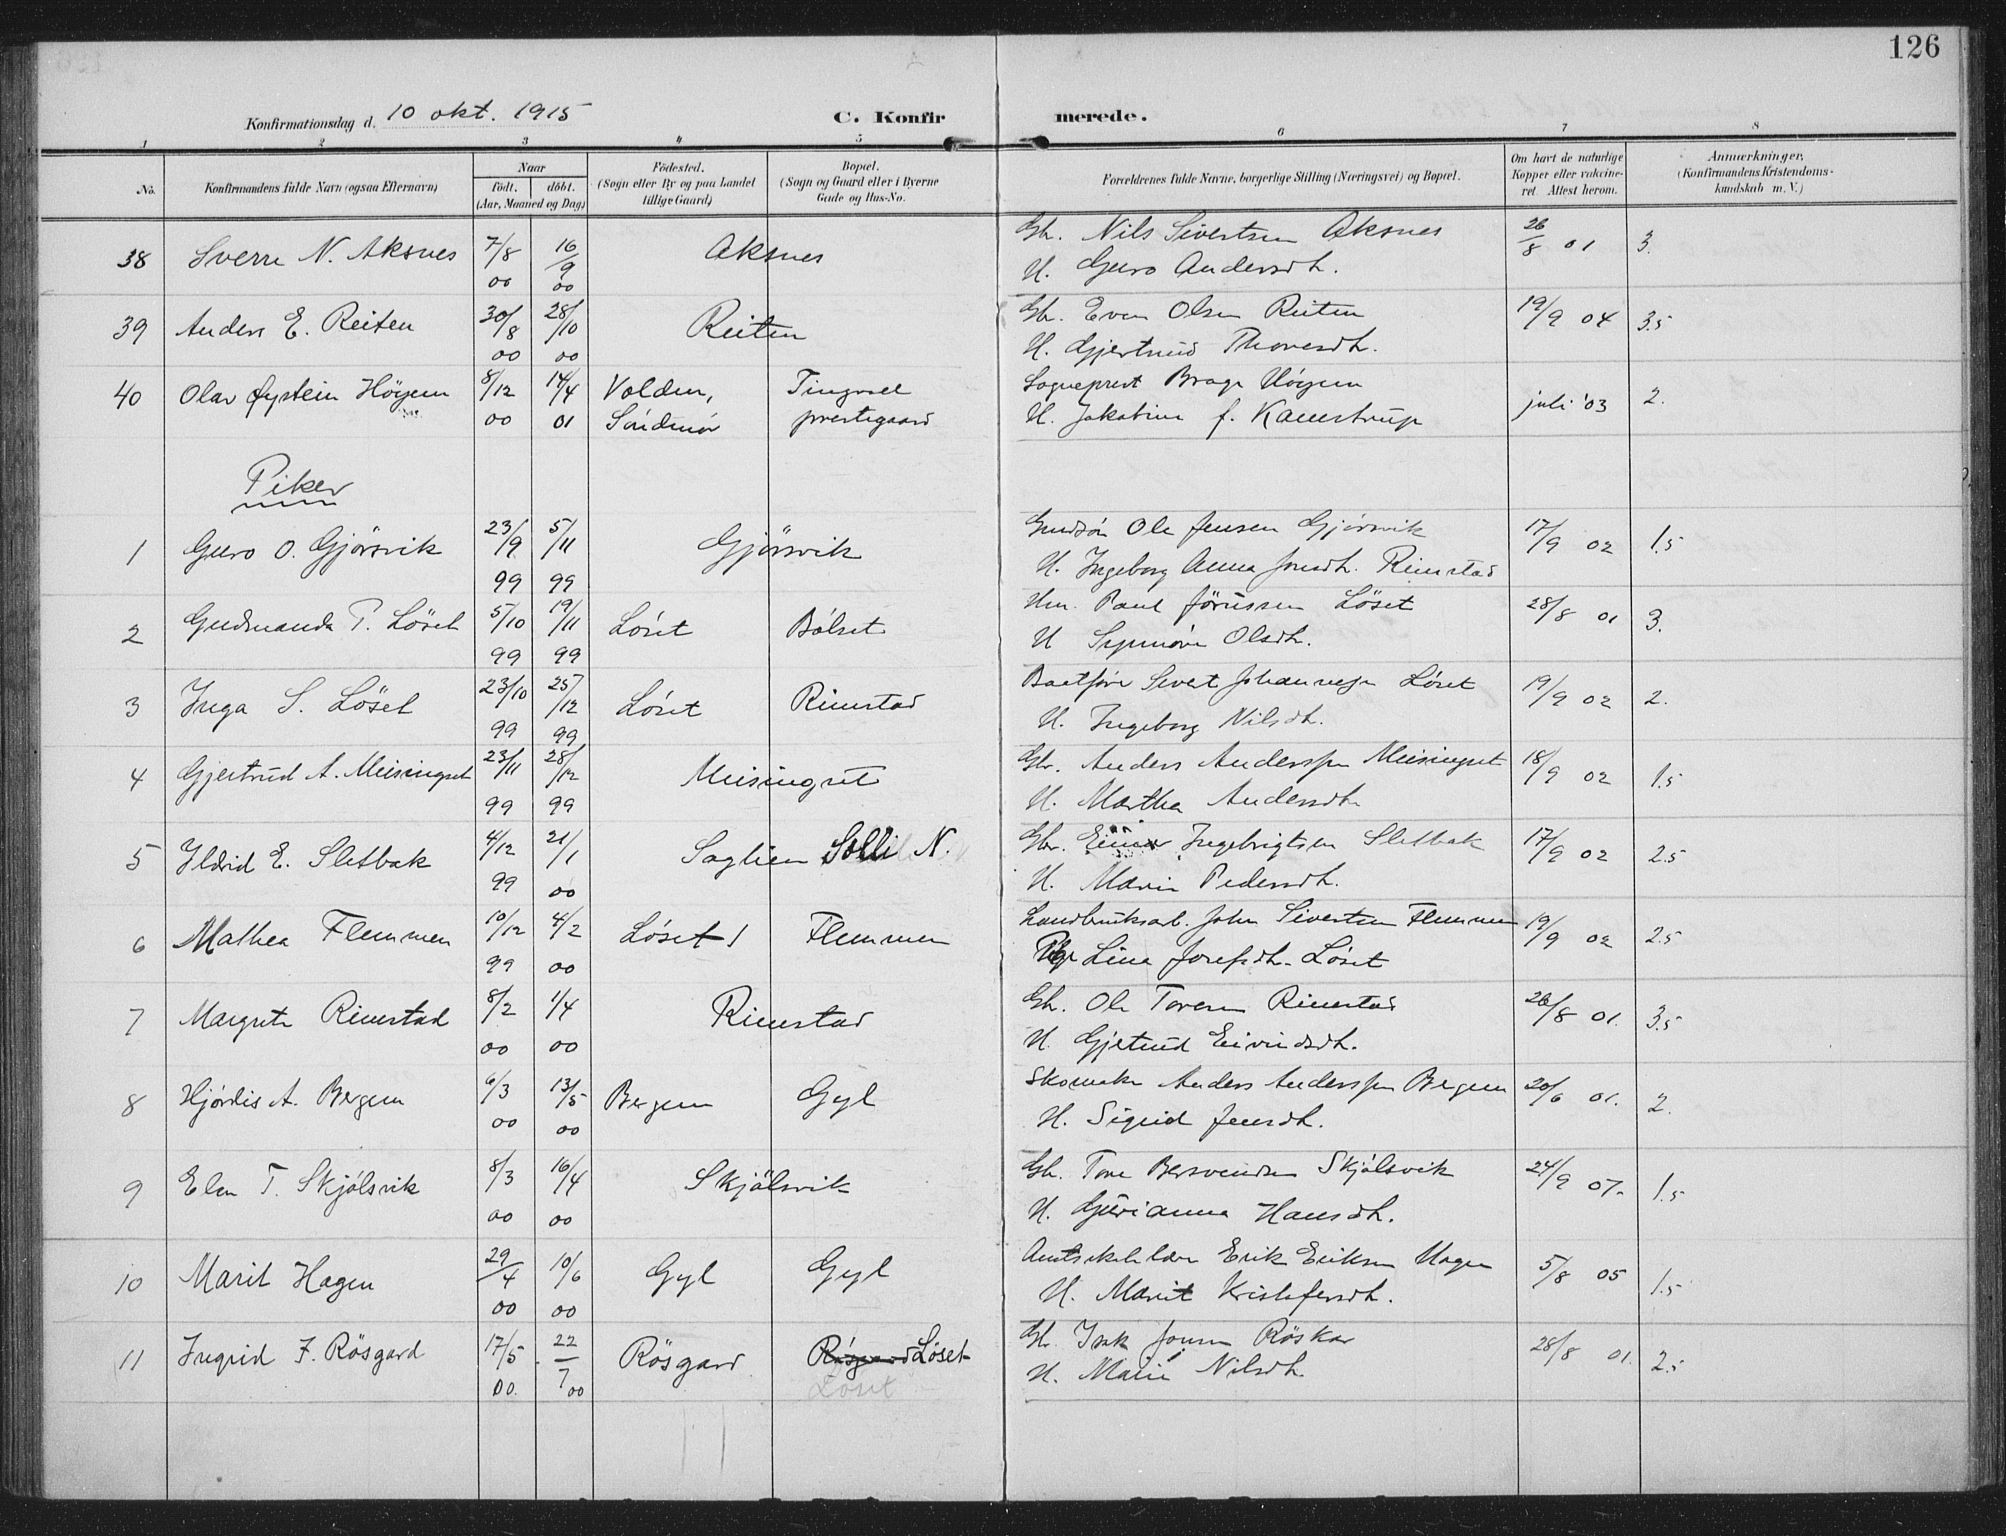 126
Konfirmationsdag d. 10 okt. 1915
C. Konfirmerede.
1 2 3 4 5 6 7 8
No.
Konfirmandens fulde Navn (ogsaa Efternavn)
Naar
födt. döbt.
(Aar, Maaned og Dag)
Födested.
(Sogn eller By og paa Landet
tillige Gaard)
Bopæl.
(Sogn og Gaard eller i Byerne
Gade og Hus-No.
Forældrenes fulde Navne, borgerlige Stilling (Næringsvei) og Bopæl.
Om havt de naturlige
Kopper eller vakcine-
ret. Attest herom.
Anmærkninger.
(Konfirmandens Kristendoms-
kundskab m. V.)
38 Sverre N. Aksnes 7/8 00 16/9 00 Aksnes Gbr. Nils Sivertsen Aksnes 26/8 01 3.
H. Guro Andersdh.
39 Anders E. Reiten 30/8 00 28/10 00 Reiten Gbr. Even Olsen Reiten 19/9 04 3.5
H. Gjertrud Thoresdh.
40 Olav Øystein Höyem 8/12 00 14/4 01 Volden, Tingvoll Sogneprest Brage Höyem juli '03 2.
Söndmör prestegaard H. Jakobine f. Kamstrup
Piker
1 Guro O. Gjörsvik 23/9 99 5/11 99 Gjörsvik Ole Jensen Gjörsvik 17/9 02 1.5
H. Ingeborg Anna Jonsdh. Rimstad
2 Gudmanda P. Löset 5/10 99 19/11 99 Löset Bölset Hm. Paul Löset 28/8 01 3.
H Synnöve Olsdh.
3 Inga S. Löset 23/10 99 25/12 99 Löset Rimstad Baatförer Sivert Johannesen Löset 19/9 02 2.
H. Ingeborg Nilsdh.
4 Gjertrud A. Meisingset 23/11 99 28/12 99 Meisingset Gbr. Anders Anderssen Meisingset 18/9 02 1.5
H. Martha Andersdh.
5 Ildrid E. Sletbak 4/12 99 21/1 00 Saglien Solli N. Gbr. Einar Ingebrigtsen Sletbak 17/9 02 2.5
H. Marie Pedersdh.
6 Mathea Flemmen 10/12 99 4/2 00 Löset Flemmen Landbruksarb. John Sivertsen Flemmen 19/9 02 2.5
Pige Lina Josefsdh. Löset
7 Margrete Rimstad 8/2 00 1/4 00 Rimstad Gbr. Ole Toresen Rimstad 26/8 01. 3.5
H. Gjetrud Eivindsdh.
8 Hjördis A. Bergem 6/3 00 13/5 00 Bergem Gyl Skomaker Anders Anderssen Bergem 20/6 01. 2.
H. Sigrid Jensdh.
9 Elen T. Skjölsvik 8/3 00 16/4 00 Skjölsvik Gbr. Tore Bersvendsen Skjölsvik 24/9 07. 1.5
H. Gurianna Hansdh.
10 Marit Hagen 29/4 00 10/6 00 Gyl Gyl Erik Eriksen Hagen 5/8 05 1.5
H. Marit Kristofersdh.
11 Ingrid I. Rösgard 17/5 00. 22/7 00 Rösgard Rösgard Löset Gbr. Isak Jonsen Röskar 28/8 01. 2.5
Löset H. Marie Nilsdh.